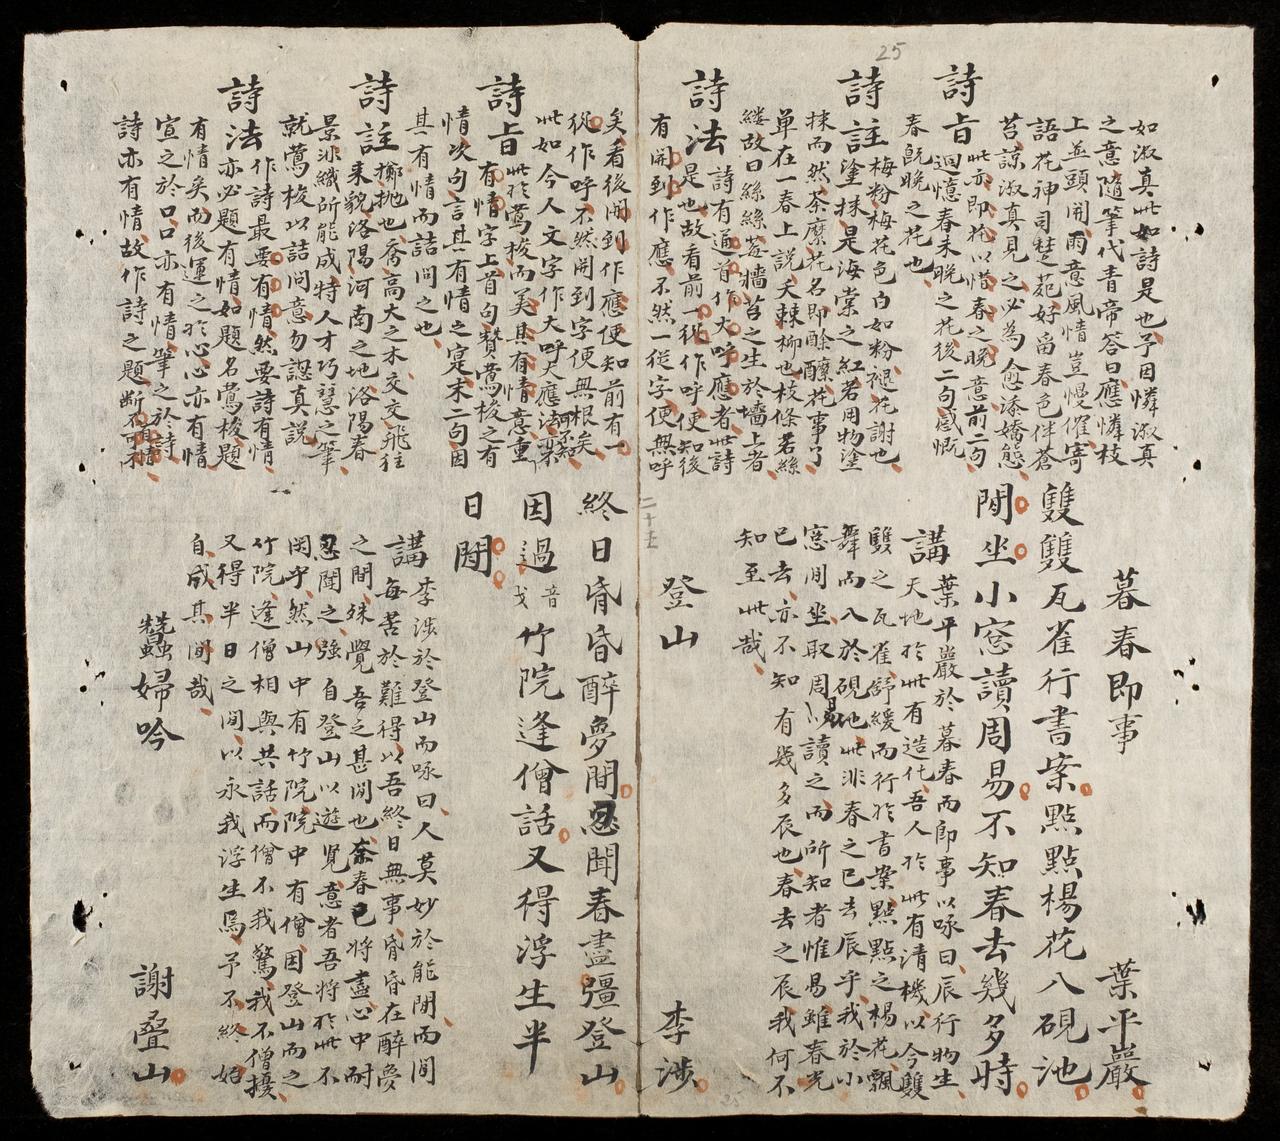 如淑真此如詩是也予因憐淑真
之意隨筆代青帝答曰應憐枝
上並頭開雨意風情豈慢催寄
語花神司楚苑好留春色伴蒼
苔諒淑真見之必為愈添嬌態
詩旨
此亦即花以惜春之晚意前二句
迴憶春未晚之花後二句感慨
春既晚之花也
詩註
梅粉梅花色白如粉褪花謝也
塗抹是海棠之紅若用物塗
抹而然茶縻花名即酴醾花事了
單在一春上說夭棘柳也枝條若絲
縷故曰絲絲莓墻苔之生於墻上者
詩法
詩有通首作大呼應者此詩
是也故看前一從作呼便知後
有開到作應不然一從字便無呼
暮春即事 葉平巖
雙雙瓦雀行書案點點楊花入硯池
閒坐小窓讀周易不知春去幾多時
講
葉平巖於暮春而即事以咏曰辰行物生
天地於此有造化吾人於此有清機以今雙
雙之瓦雀舒緩而行於書案點點之楊花飄
舞而入於硯池此非春之已去辰乎我於小
窓間坐取周易以讀之而所知者惟易雖春光
已去亦不知有幾多辰也春去之辰我何不
知至此哉
登山 李涉
二十五
25
矣看後開到作應便知前有一
從作呼不然開到字便無根矣
此如今人文字作大呼大應法不可不察
詩旨
此於鶯梭而美其有情意重
有情字上首句贊鶯梭之有
情次句言其有情之寔末二句因
其有情而詰問之也
詩註
擲拋也喬高大之木交交飛往
來貌洛陽河南之地洛陽春
景非織所能成特人才巧慧之筆
就鶯梭以詰問意勿認真說
詩法
作詩最要有情然要詩有情
亦必題有情如題名鶯梭題
有情矣而後運之於心心亦有情
宣之於口口亦有情筆之於詩
詩亦有情故作詩之題斷不可不有情
終日昏昏醉夢間忽聞春盡彊登山
因過音戈竹院逢僧話又得浮生半
日閒
講
李涉於登山而咏曰人莫妙於能閒而閒
每苦於難得以吾終日無事昏昏在醉夢
之間殊覺吾之甚閒也奈春已將盡心中耐
忽聞之強自登山以遊覽意者吾將於此不
閒乎然山中有竹院院中有僧因登山而之
竹院逢僧相與共話而僧不我驚我不僧擾
又得半日之閒以永我浮生焉予不終始
自成其閒哉
蠶婦吟 謝叠山
25